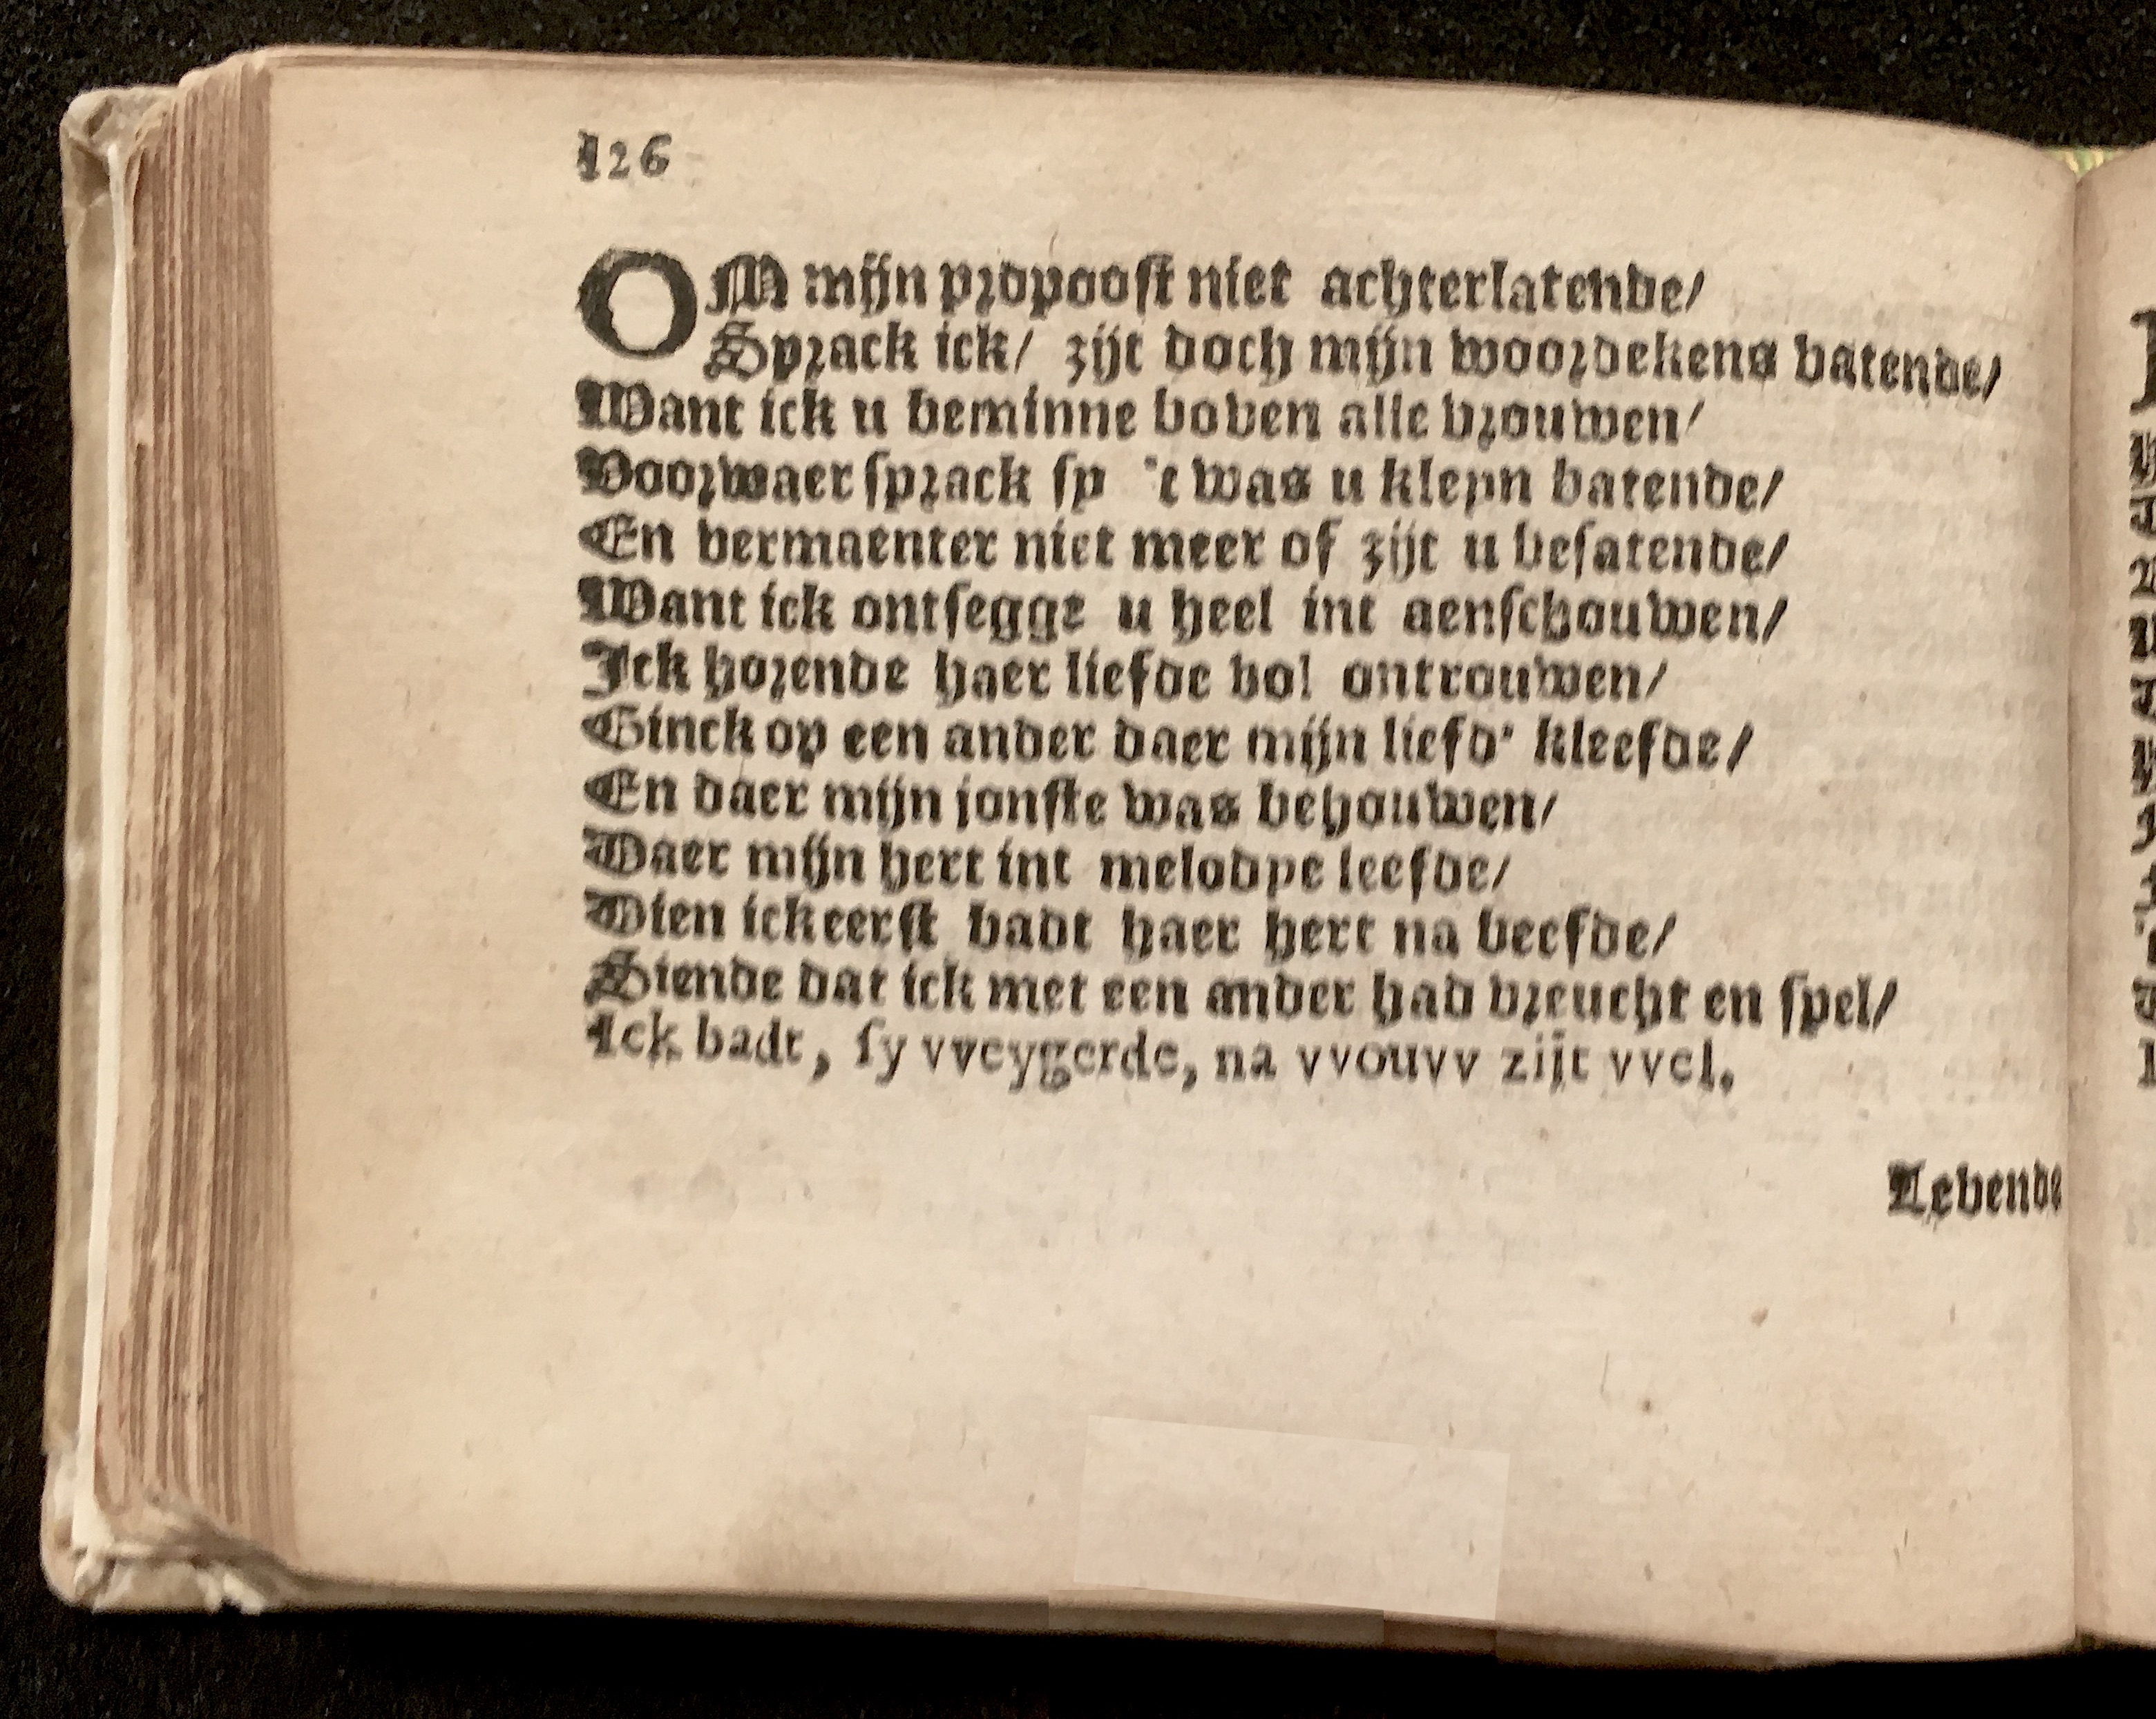 126
OM mijn propooſt niet achterlatende/
Sprack ick/ zijt doch mijn woordekens batende/
Want ick u beminne boven alle vrouwen/
Voorwaer ſprack ſy 't was u kleyn batende/
En vermaenter niet meer of zijt u beſatende/
Want ick ontſegge u heel int aenſchouwen/
Ick horende haer liefde vol ontrouwen/
Ginck op een ander daer mijn liefd' kleefde/
En daer mijn jonſte was behouwen/
Daer mijn hert int melodye leefde/
Dien ick eerſt badt haer hert na beefde/
Siende dat ick met een ander had vreucht en ſpel/
Ick badt, ſy vveygerde, na vvouvv zijt vvel.
Levende